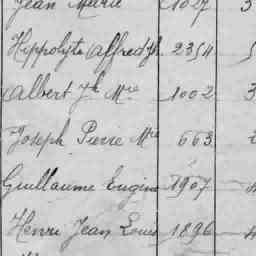 Jean Marie 1027 3
Hippolyte Alfred Jh 2354
Albert Jh Mie 1002 3
Joseph Pierre Mie 663
Guillaume Eugène 1907 4
Henri Jean Louis 1896 4